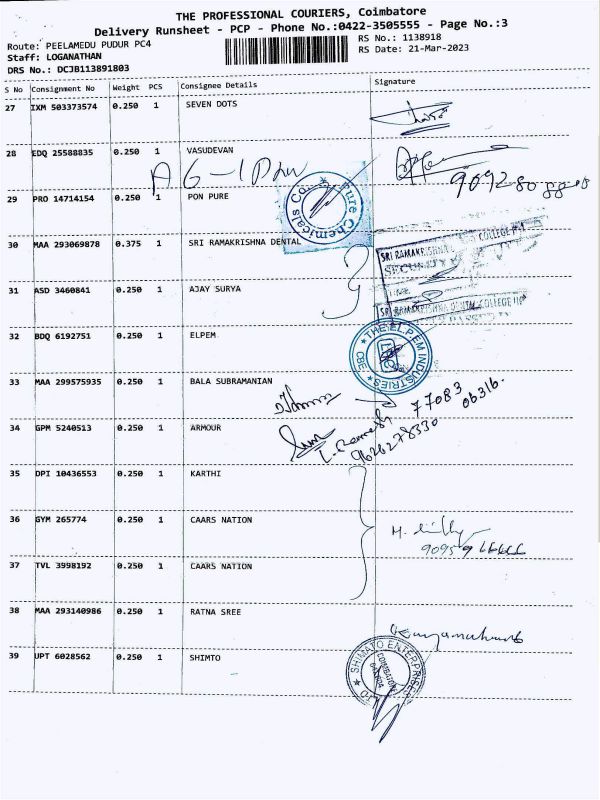 THE PROFESSIONAL COURIERS, Coimbatore
Delivery Runsheet - PCP - Phone No.:0422-3505555 - Page No.:3
Route: PEELAMEDU PUDUR PC4
RS No.: 1138918
Staff: LOGANATHAN
RS Date: 21-Mar-2023
DRS No.: DCJB113891803
S No Consignment No Weight PCS Consignee Details Signature
27 IXM 503373574 0.250 1 SEVEN DOTS
28 EDQ 25588835 0.250 1 VASUDEVAN
29 PRO 14714154 0.250 1 PON PURE
Pure Chemicals Co.
30 MAA 293069878 0.375 1 SRI RAMAKRISHNA DENTAL
SRI RAMAKRISHNA COLLEGE
SECURITY
31 ASD 3460841 0.250 1 AJAY SURYA
SRI RAMAKRISHNA DENTAL COLLEGE
32 BDQ 6192751 0.250 1 ELPEM
THE EL.P.EM INDUSTRIES CBE
33 MAA 299575935 0.250 1 BALA SUBRAMANIAN
77083 06316.
34 GPM 5240513 0.250 1 ARMOUR
L. Ramesh
9626278330
35 DPI 10436553 0.250 1 KARTHI
36 GYM 265774 0.250 1 CAARS NATION
37 TVL 3998192 0.250 1 CAARS NATION
38 MAA 293140986 0.250 1 RATNA SREE
39 UPT 6028562 0.250 1 SHIMTO
SHIMATO ENTERPRISES